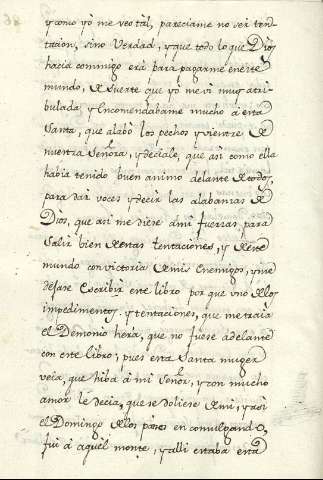 y como yo me veo tal, pareciame no ser ten-
tacion, sino Verdad, y que todo lo que Dios
hacia commigo era para pagarme en este
mundo, de suerte que yo me vi muy atri-
bulada y Encomendabame mucho a esta
Santa, que alabó los pechos y vientre de
nuestra Señora, y deciale, que asi como ella
habia tenido buen animo delante de todos,
para dar voces y decir las alabanzas de
Dios, que asi me diese a mi fuerzas para
salir bien de estas tentaciones, y de este
mundo con victoria de mis Enemigos, y me
dejase Escribir este libro por que uno de los
impedimentos y tentaciones, que me traia
el Demonio hera, que no fuese adelante
con este libro; pues esta Santa muger
veia, que hiba a mi Señor, y con mucho
amor le decia, que se doliese de mi, y asi
el Domingo de los panes en comulgando,
fui a aquel monte, y alli estaba esta